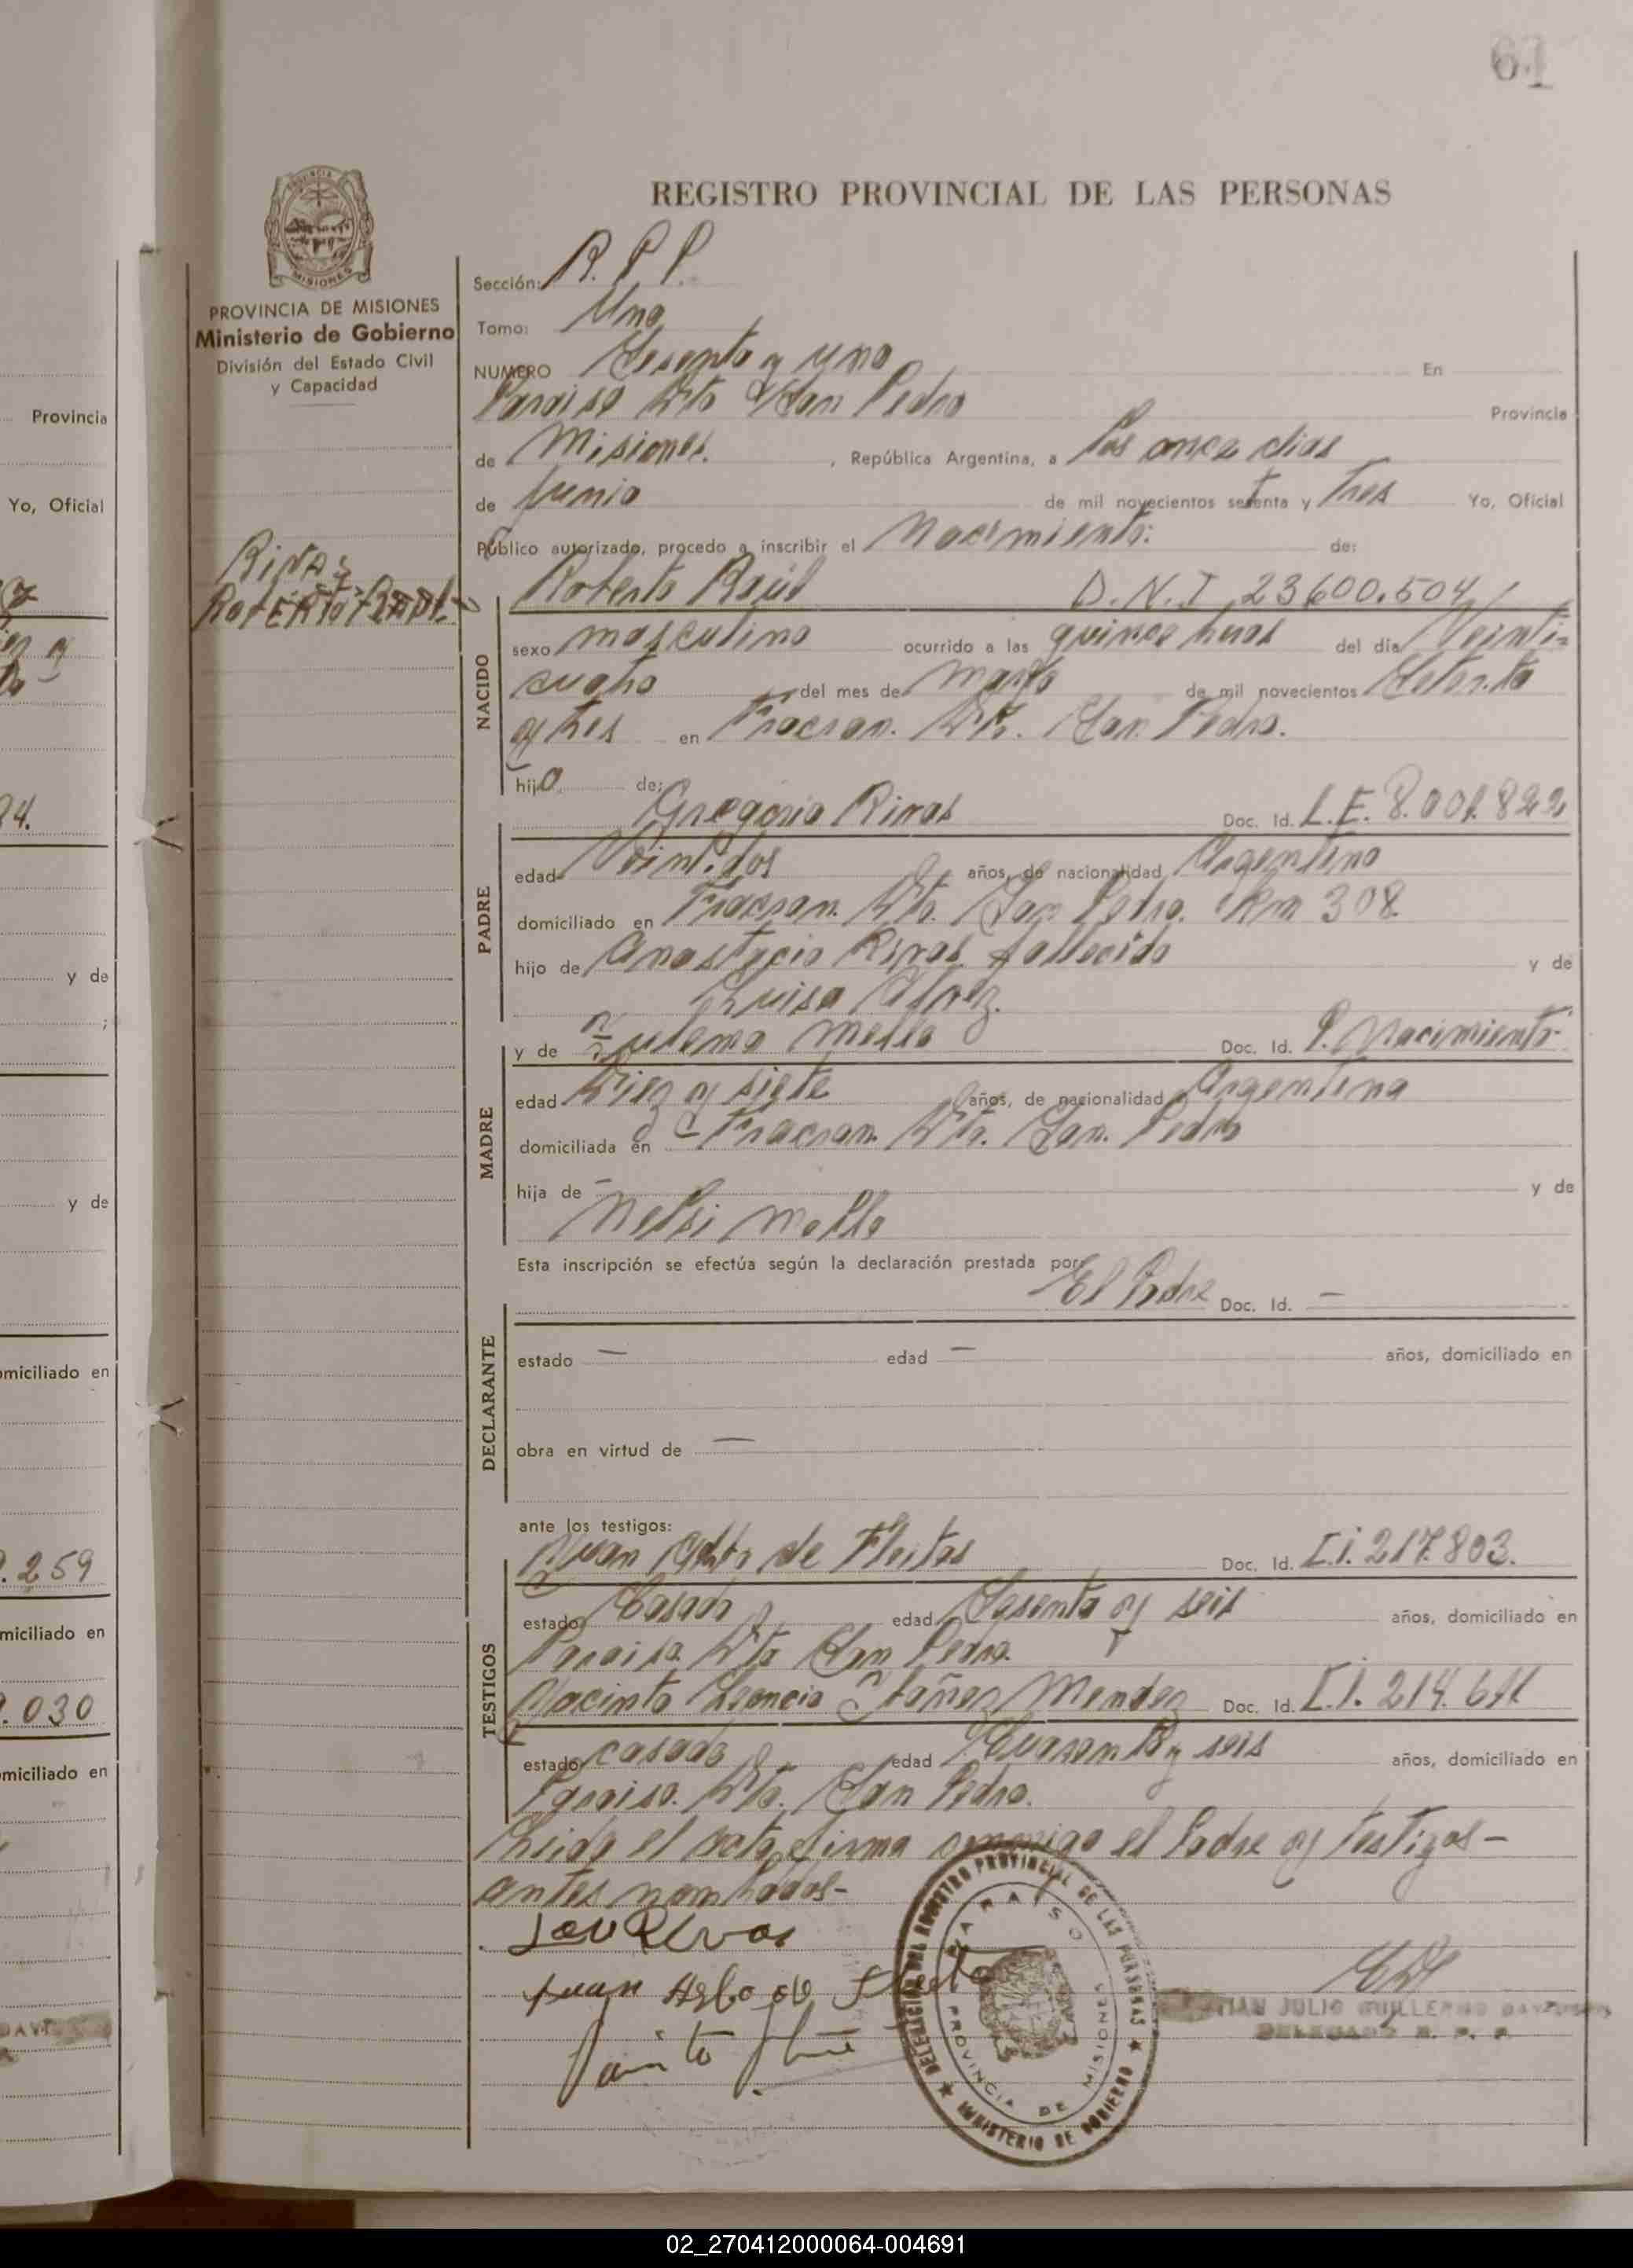 61
REGISTRO PROVINCIAL DE LAS PERSONAS
PROVINCIA DE MISIONES
Ministerio de Gobierno
División del Estado Civil
y Capacidad
Sección: R. P. P.
Tomo: Uno
NUMERO Sesenta y uno En
Paraiso Dto San Pedro Provincia
de Misiones. , República Argentina, a los once dias
de Junio de mil novecientos setenta y Tres Yo, Oficial
Público autorizado, procedo a inscribir el Nacimiento: de:
RIVAS
ROBERTO RAUL
Roberto Raúl D.N.I 23600.504
NACIDO
sexo masculino ocurrido a las quince horas del día Veinti=
cuatro del mes de Marzo de mil novecientos Setenta
y tres en Fracran. Dto. San Pedro.
hijo de:
Gregorio Rivas Doc. Id. L.E. 8.001.822
PADRE
edad Veintidos años, de nacionalidad Argentino
domiciliado en Fracran. Dto. San Pedro. Km 308.
hijo de Anastacio Rivas fallecido y de
Luisa
y de Zulema Mello Doc. Id. P. Nacimiento
MADRE
edad Diez y siete años, de nacionalidad Argentina
domiciliada en Fracran. Dto. San Pedro
hija de — y de
Nelsi Mello
Esta inscripción se efectúa según la declaración prestada por
El Padre Doc. Id. —
DECLARANTE
estado — edad — años, domiciliado en
obra en virtud de —
ante los testigos:
Juan de Fleitas Doc. Id. C.I. 217.803.
TESTIGOS
estado Casado edad Sesenta y seis años, domiciliado en
Paraiso. Dto San Pedro.
Jacinto Leoncio Mendez Doc. Id. C.I. 214.611
estado casado edad Cuarenta y seis años, domiciliado en
Paraiso. Dto. San Pedro.
Leida el acta firma conmigo el Padre y testigos-
antes nombrados-
Juan
DELEGACION DEL REGISTRO PROVINCIAL DE LAS PERSONAS
PARAISO
PROVINCIA DE MISIONES
MINISTERIO DE GOBIERNO
JULIO GUILLERMO
DELEGADO R. P. P.
Provincia
Yo, Oficial
y de
y de
omiciliado en
.259
miciliado en
.030
miciliado en
02_270412000064-004691